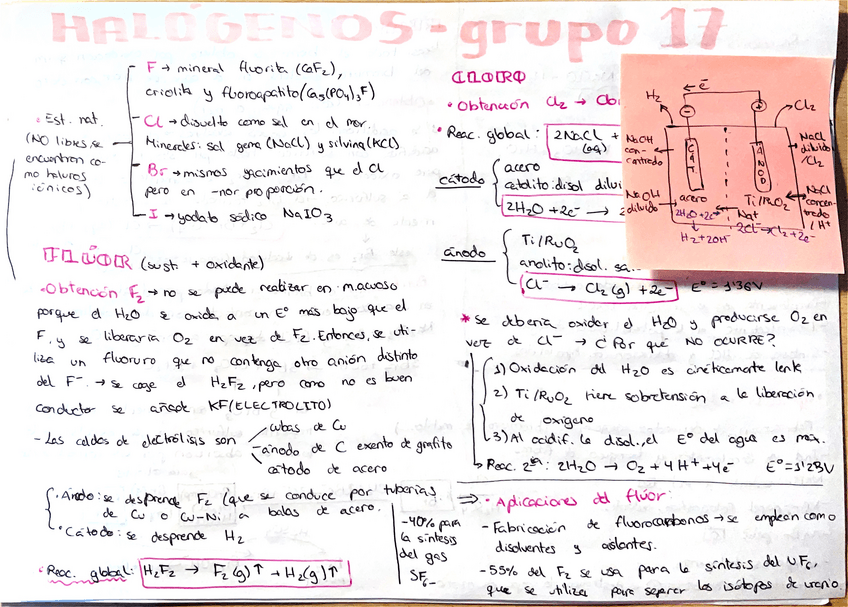 HALÓGENOS - grupo 17
· Est. nat.
(NO libres, se
encuentran co-
mo haluros
iónicos)
F → mineral fluorita (CaF₂),
criolita y fluoroapatito (Ca₅(PO₄)₃F)
Cl → disuelto como sal en el mar.
Minerales: sal gema (NaCl) y silvina (KCl)
Br → mismos yacimientos que el Cl
pero en -nor proporción.
I → yodato sódico NaIO₃
FLÚOR (sust. + oxidante)
· Obtención F₂ → no se puede realizar en m.acuoso
porque el H₂O se oxida a un Eº más bajo que el
F, y se liberaría O₂ en vez de F₂. Entonces, se uti-
liza un fluoruro que no contenga otro anión distinto
del F⁻. → se coge el H₂F₂, pero como no es buen
conductor se añade KF (ELECTROLITO)
- Las celdas de electrólisis son
cubas de Cu
ánodo de C exento de grafito
cátodo de acero
· Ánodo: se desprende F₂ (que se conduce por tuberías
de Cu o Cu-Ni a balas de acero.
· Cátodo: se desprende H₂
· Reac. global: H₂F₂ → F₂(g)↑ + H₂(g)↑
-40% para
la síntesis
del gas
SF₆-
CLORO
· Obtención Cl₂ →
· Reac. global: 2NaCl +
(aq)
cátodo
acero
catolito: disol
2H₂O + 2e⁻ →
ánodo
Ti/RuO₂
anolito: disol.
Cl⁻ → Cl₂(g) + 2e⁻ Eº = 1'36V
e⁻
H₂
Cl₂
NaOH
con-
centrado
CAT
ANOD
NaCl
diluido
/Cl₂
NaOH
diluido
acero
Ti/RuO₂
NaCl
concen-
trado
/H⁺
2H₂O + 2e⁻
Na⁺
H₂ + 2OH⁻
2Cl⁻ → Cl₂ + 2e⁻
* se debería oxidar el H₂O y producirse O₂ en
vez de Cl⁻ → ¿Por qué NO OCURRE?
1) Oxidación del H₂O es cinéticamente lenta
2) Ti/RuO₂ tiene sobretensión a la liberación
de oxígeno
3) Al acidif. la disol., el Eº del agua es max.
Reac. 2ª: 2H₂O → O₂ + 4H⁺ + 4e⁻ Eº = 1'23V
⇒ · Aplicaciones del flúor:
- Fabricación de fluorocarbonos → se emplean como
disolventes y aislantes.
- 55% del F₂ se usa para la síntesis del UF₆,
que se utiliza para separar los isótopos de uranio